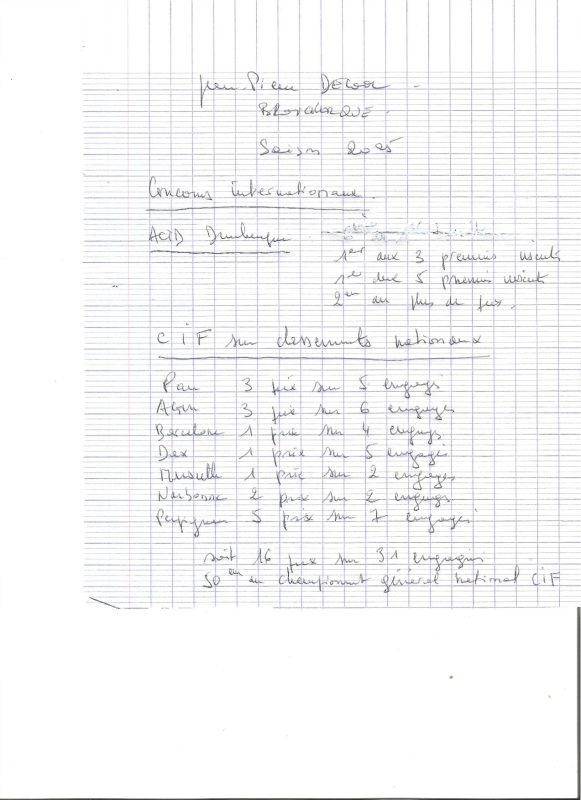 Jean-Pierre DECOOL
BROUCKERQUE.
Saison 2025
Concours internationaux.
ACID Dunkerque
1er aux 3 premiers inscrits
1er aux 5 premiers inscrits
2em au plus de prix.
CIF sur classements nationaux
Pau 3 prix sur 5 engagés
Agen 3 prix sur 6 engagés
Barcelone 1 prix sur 4 engagés
Dax 1 prix sur 5 engagés
Marseille 1 prix sur 2 engagés
Narbonne 2 prix sur 2 engagés
Perpignan 5 prix sur 7 engagés
soit 16 prix sur 31 engagés
50em au championnat général national CIF